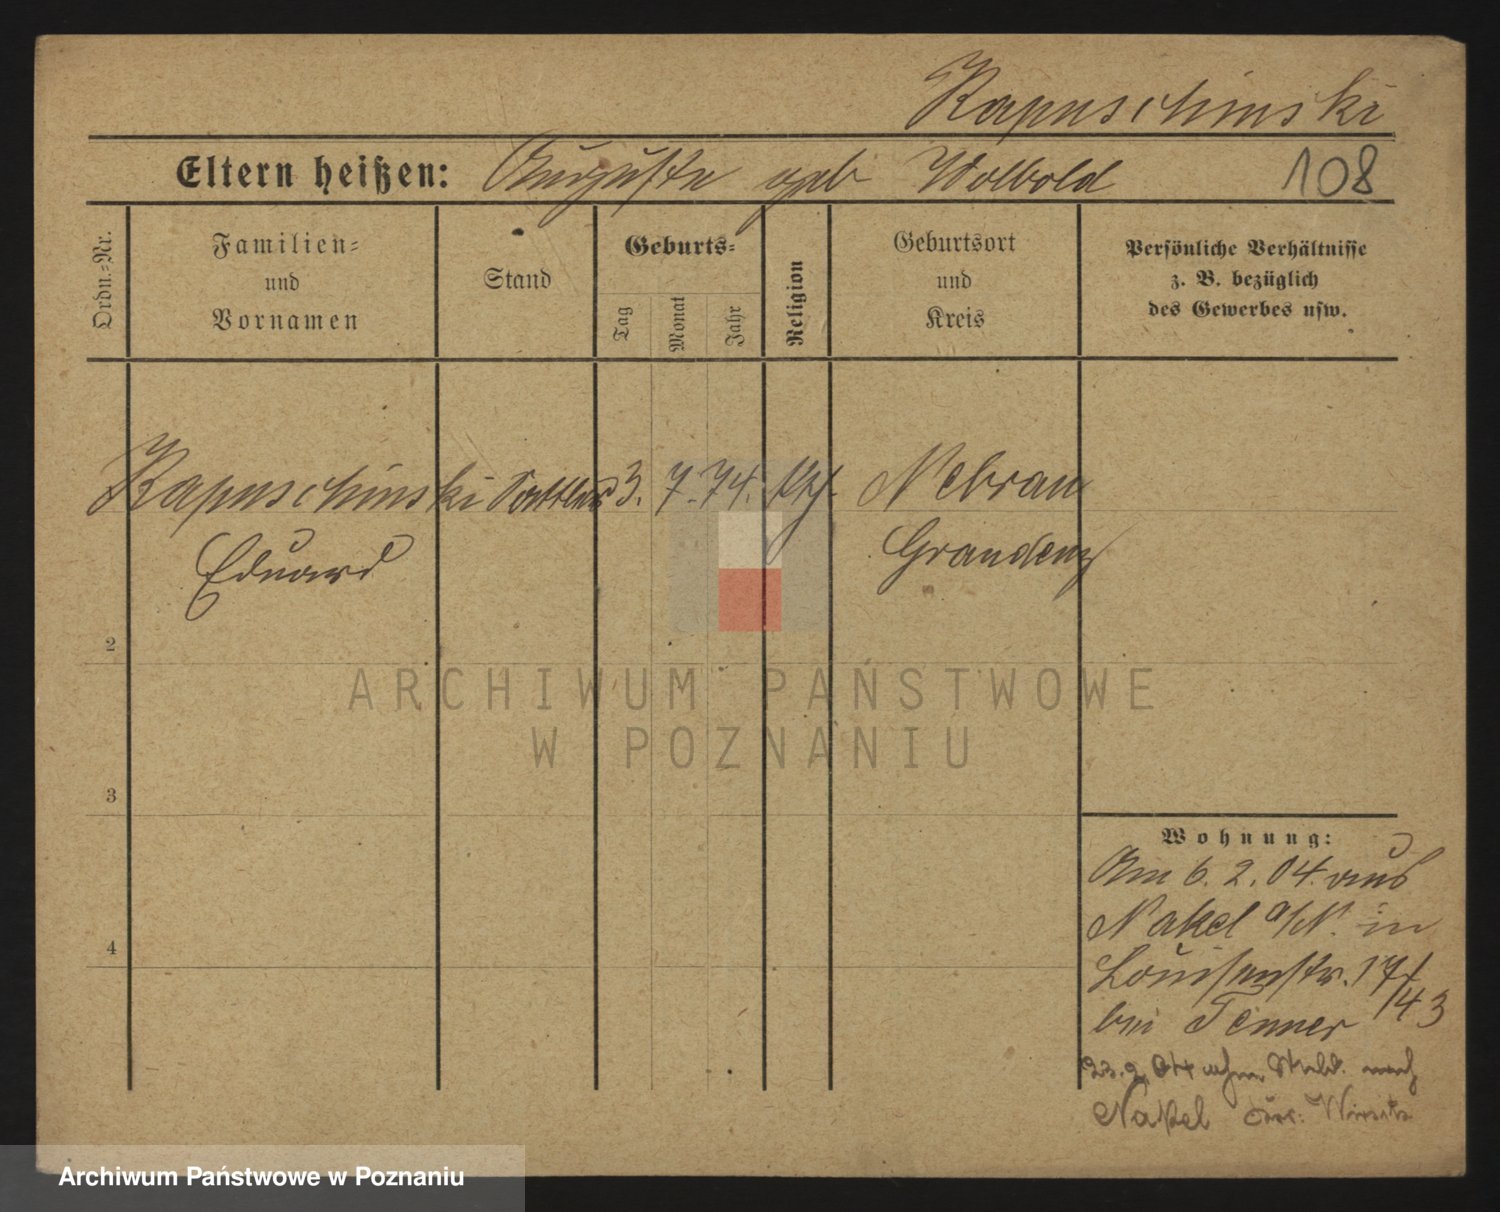 Kapuschinski
Eltern heißen: Auguste geb Wolbold
108
Ordn.=Nr.
Familien=
und
Vornamen
Stand
Geburts=
Tag
Monat
Jahr
Religion
Geburtsort
und
Kreis
Persönliche Verhältnisse
z. B. bezüglich
des Gewerbes usw.
Kapuschinski Sattler 3. 7. 74. Nebrau
Eduard Graudenz
2
3
4
Wohnung:
Am 6. 2. 04. aus
Nakel a/N. in
Louisenstr. 17/
bei Tenner 143
23. 2. 04 nach
Nakel Wirsitz
ARCHIWUM PAŃSTWOWE
W POZNANIU
Archiwum Państwowe w Poznaniu